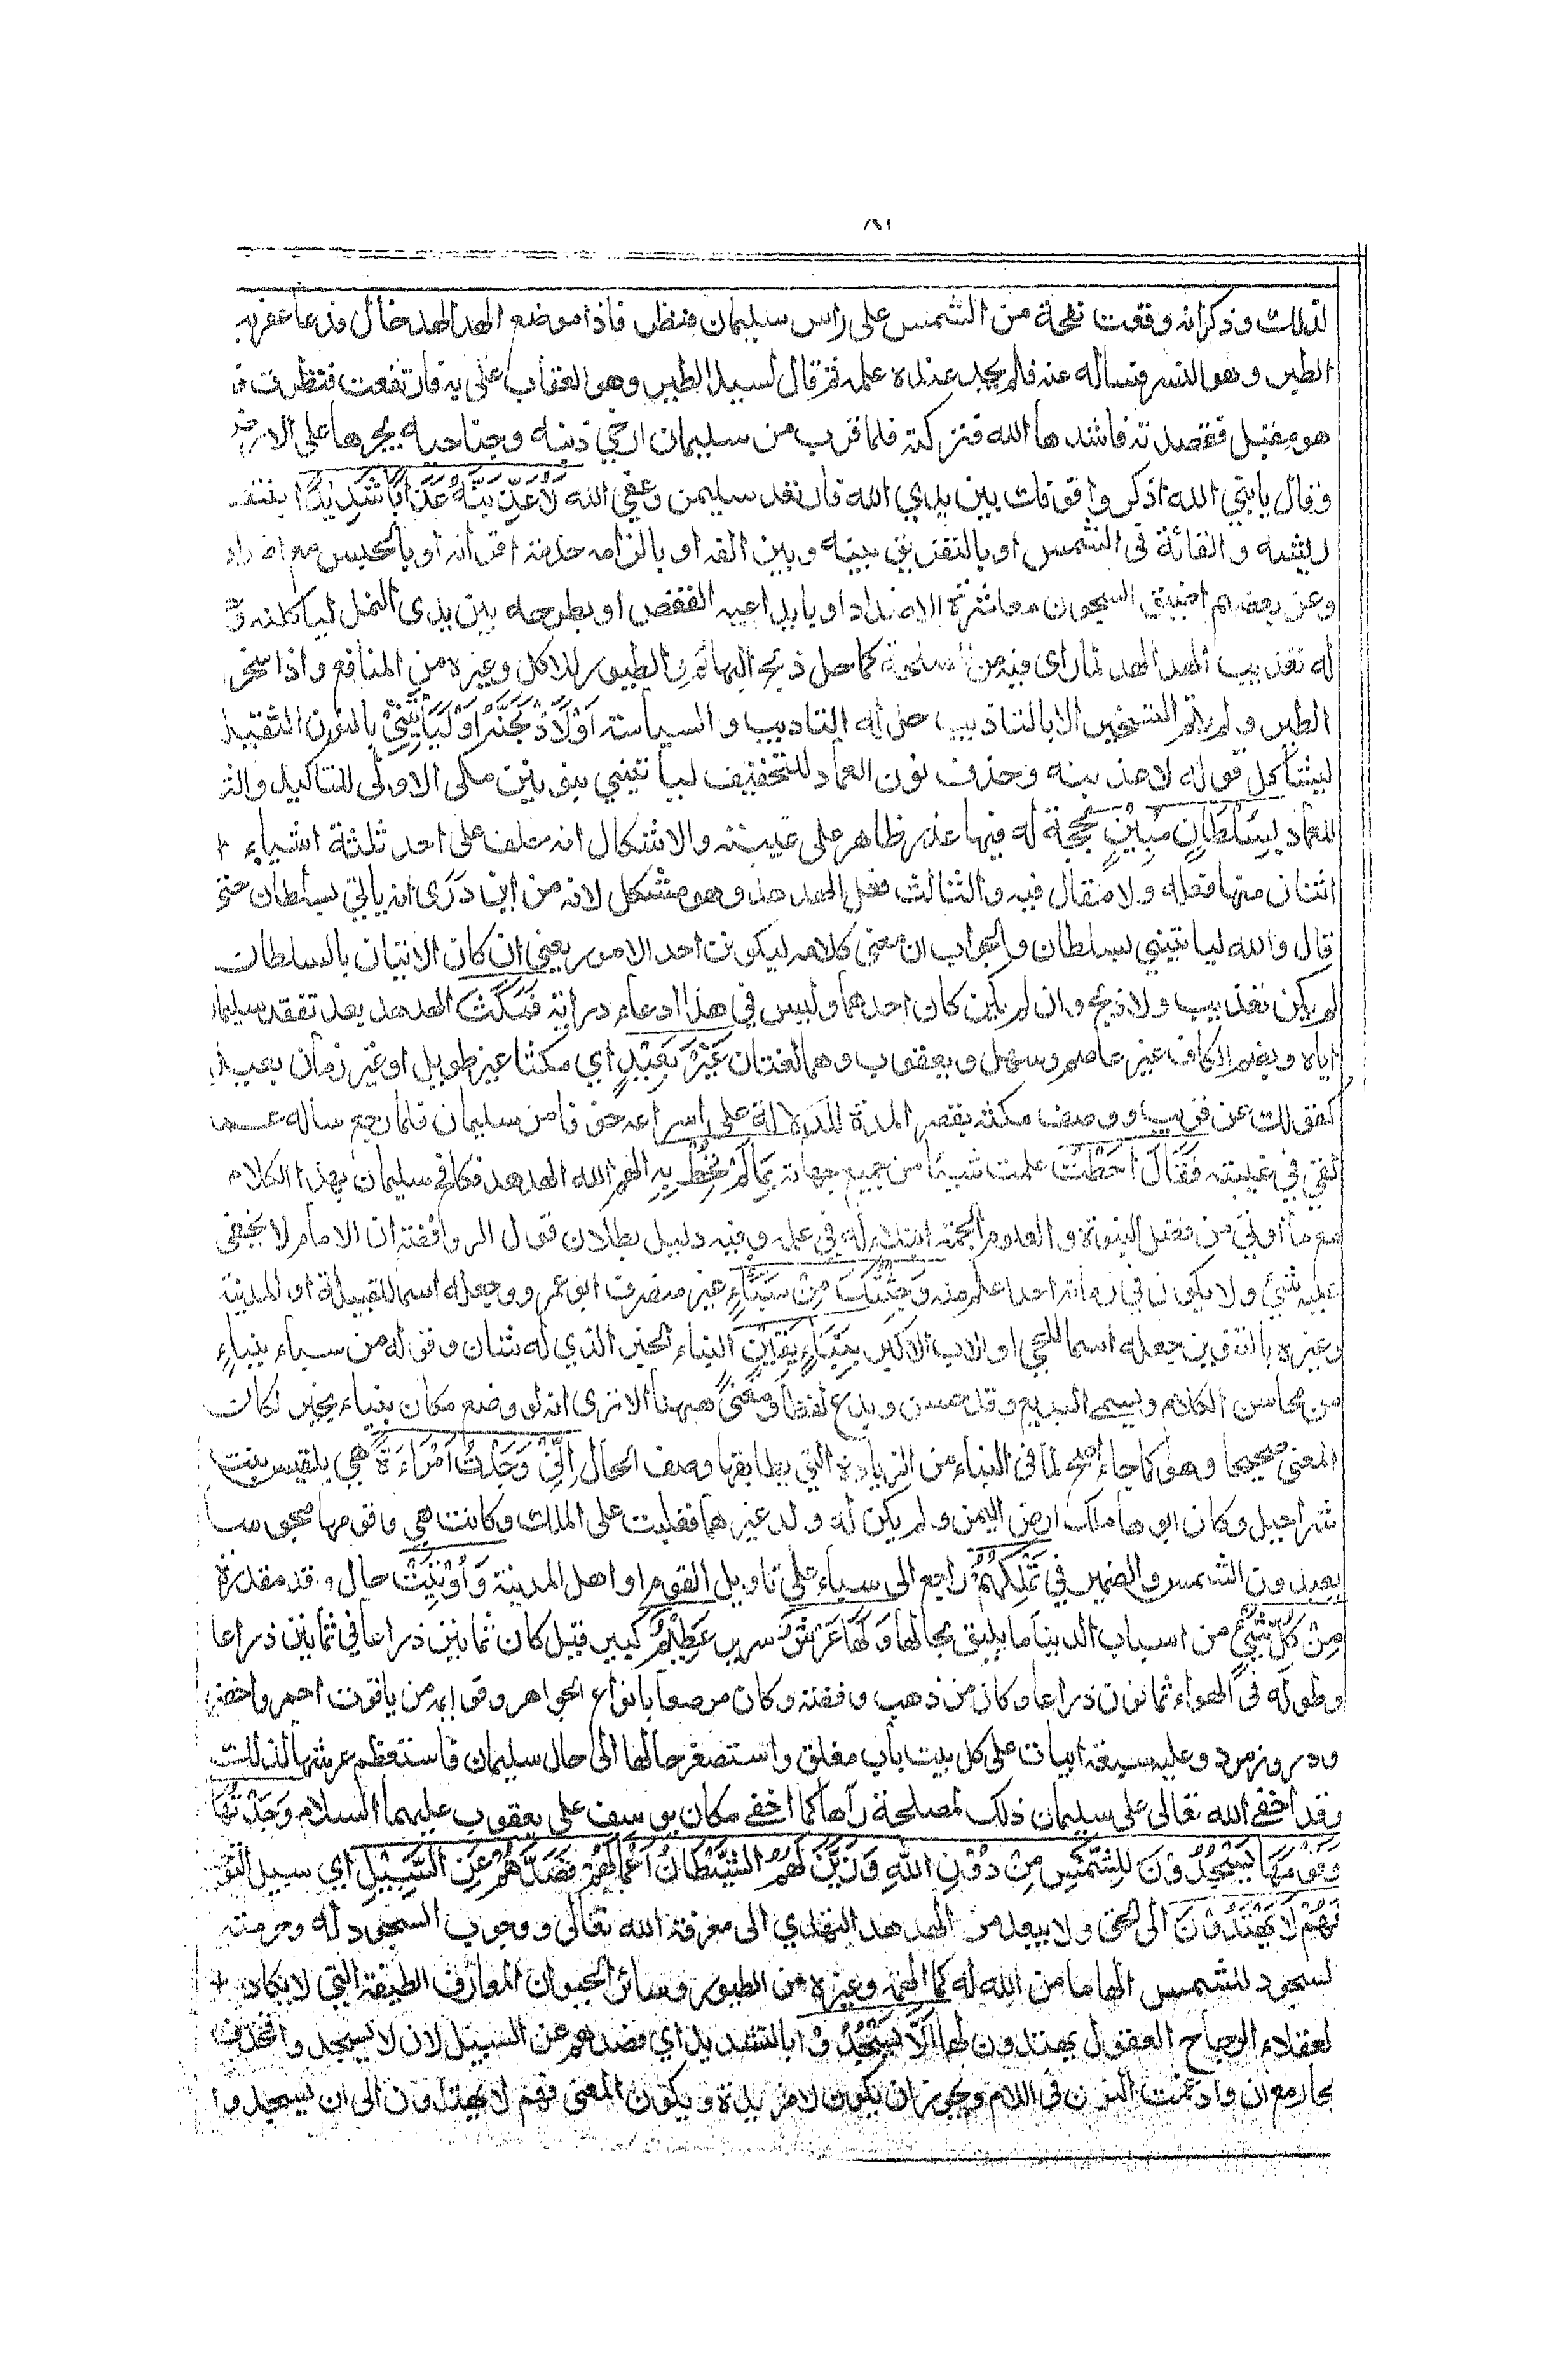 لذلك وذكر انه وقعت نفحة من الشمس على راس سليمان فنظر فاذا موضع الهدهد خال فدعا عفريت
الطير وهو النسر فساله عنه فلم يجد عنده علمه ثم قال لسيد الطير وهو العقاب علي به فارتفعت فنظرت ف
هو مقبل فقصدته فناشدها الله فتركته فلما قرب من سليمان ارخى ذنبه وجناحيه يجرها على الارض
وقال يا نبي الله اذكر وقوفك بين يدي الله فارتعد سليمن وعفى الله لَاُعَذِّبَنَّهٗ عَذَابًا شَدِيْدًا بنتف
ريشه والقائه في الشمس او بالتفريق بينه وبين الفه او بالزامه خدمة اقرانه او بالحبس مع اضداد
وعن بعضهم اضيق السجون معاشرة الاضداد او بايداعه القفص او بطرحه بين يدى النمل لياكله و
له تعذيب الهدهد لما راى فيه من المصلحة كما حل ذبح البهائم والطيور للاكل وغيره من المنافع واذا سخر
الطير ولم يتم التسخير الا بالتاديب حل له التاديب والسياسة اَوْ لَاَذْبَحَنَّهٗ اَوْ لَيَاْتِيَنِّيْ بالنون الثقيلة
ليشاكل قوله لاعذبنه وحذف نون العماد للتخفيف لياتينني بنونين مكى الاولى للتاكيد والث
للعماد بِسُلْطَانٍ مُّبِيْنٍ بحجة له فيها عذر ظاهر على غيبته والاشكال انه حلف على احد ثلثة اشياء
اثنان منها فعله ولا مقال فيه والثالث فعل الهدهد وهو مشكل لانه من اين درى انه ياتي بسلطان حتى
قال والله لياتينني بسلطان والجواب ان معنى كلامه ليكونن احد الامور يعني ان كان الاتيان بالسلطان
لم يكن تعذيب ولا ذبح وان لم يكن كان احدهما وليس في هذا ادعاء دراية فَمَكَثَ الهدهد بعد تفقد سليمان
اياه وبضم الكاف غير عاصم وسهل ويعقوب وهما لغتان غَيْرَ بَعِيْدٍ اي مكثا غير طويل او غير زمان بعيد
كقولك عن قريب ووصف مكثه بقصر المدة للدلالة على اسراعه خوفا من سليمان فلما رجع ساله عما
لقي في غيبته فَقَالَ اَحَطْتُ علمت شيئا من جميع جهاته بِمَا لَمْ تُحِطْ بِهٖ الهم الله الهدهد فكافح سليمان بهذا الكلام
مع ما اوتي من فضل النبوة والعلوم الجمة ابتلاء له في علمه وفيه دليل بطلان قول الروافضة ان الامام لا يخفى
عليه شئ ولا يكون في زمانه احد اعلم منه وَجِئْتُكَ مِنْ سَبَإٍ غير منصرف ابو عمرو وجعله اسما للقبيلة او المدينة
وغيره بالتنوين جعله اسما للحي او الاب الاكبر بِنَبَإٍ يَّقِيْنٍ النباء الخبر الذي له شان وقوله من سباء بنباء
من محاسن الكلام ويسمى البديع وقد حسن وبدع لفظا ومعنى ههنا الا ترى انه لو وضع مكان بنباء بخبر لكان
المعنى صحيحا وهو كما جاء اصح لما في النباء من الزيادة التي يطابقها وصف الحال اِنِّيْ وَجَدْتُّ امْرَاَةً هي بلقيس بنت
شراحيل وكان ابوها ملك ارض اليمن ولم يكن له ولد غيرها فغلبت على الملك وكانت هي وقومها مجوسا
يعبدون الشمس والضمير في تَمْلِكُهُمْ راجع الى سباء على تاويل القوم او اهل المدينة وَاُوْتِيَتْ حال وقد مقدرة
مِنْ كُلِّ شَيْءٍ من اسباب الدنيا ما يليق بحالها وَلَهَا عَرْشٌ سرير عَظِيْمٌ كبير قيل كان ثمانين ذراعا في ثمانين ذراعا
وطوله في الهواء ثمانون ذراعا وكان من ذهب وفضة وكان مرصعا بانواع الجواهر وقوايمه من ياقوت احمر واخضر
ودر وزمرد وعليه سبعة ابيات على كل بيت باب مغلق واستصغر حالها الى حال سليمان فاستعظم عرشها لذلك
وقد اخفى الله تعالى على سليمان ذلك لمصلحة رآها كما اخفى مكان يوسف على يعقوب عليهما السلام وَجَدْتُّهَا
وَقَوْمَهَا يَسْجُدُوْنَ لِلشَّمْسِ مِنْ دُوْنِ اللّٰهِ وَزَيَّنَ لَهُمُ الشَّيْطَانُ اَعْمَالَهُمْ فَصَدَّهُمْ عَنِ السَّبِيْلِ اي سبيل التو
فَهُمْ لَا يَهْتَدُوْنَ الى الحق ولا يبعد من الهدهد التهدي الى معرفة الله تعالى ووجوب السجود له وحرمة
لسجود للشمس الهاما من الله له كما الهمه وغيره من الطيور وسائر الحيوان المعارف اللطيفة التي لا يكاد
لعقلاء الرجاح العقول يهتدون لها اَلَّا يَسْجُدُوْا بالتشديد اي فصدهم عن السبيل لان لا يسجدوا فحذف
لجار مع ان وادغمت النون في اللام ويجوز ان يكون لا مزيدة ويكون المعنى فهم لا يهتدون الى ان يسجدوا